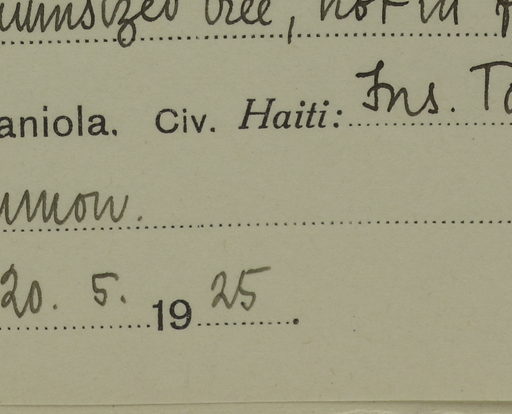 umsized tree, not in
aniola. Civ. Haiti: Ins. To
mmon.
20. 5. 1925.